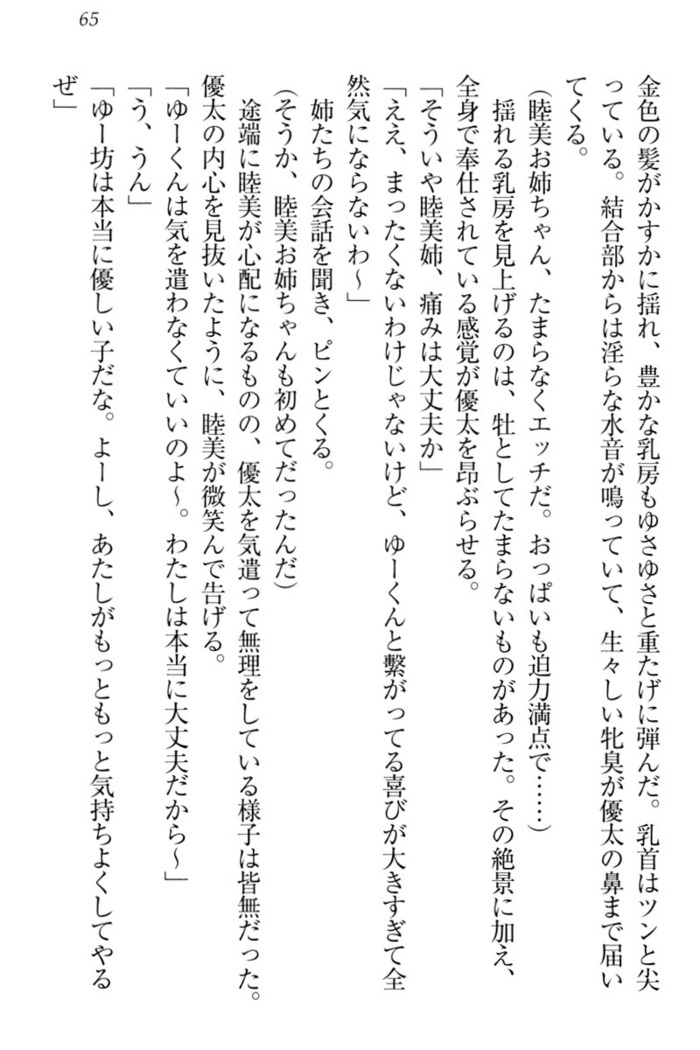 65
金色の髪がかすかに揺れ、豊かな乳房もゆさゆさと重たげに弾んだ。乳首はツンと尖
っている。結合部からは淫らな水音が鳴っていて、生々しい牝臭が優太の鼻まで届い
てくる。
(睦美お姉ちゃん、たまらなくエッチだ。おっぱいも迫力満点で……)
揺れる乳房を見上げるのは、牡としてたまらないものがあった。その絶景に加え、
全身で奉仕されている感覚が優太を昂ぶらせる。
「そういや睦美姉、痛みは大丈夫か」
「ええ、まったくないわけじゃないけど、ゆーくんと繋がってる喜びが大きすぎて全
然気にならないわ～」
姉たちの会話を聞き、ピンとくる。
(そうか、睦美お姉ちゃんも初めてだったんだ)
途端に睦美が心配になるものの、優太を気遣って無理をしている様子は皆無だった。
優太の内心を見抜いたように、睦美が微笑んで告げる。
「ゆーくんは気を遣わなくていいのよ～。わたしは本当に大丈夫だから～」
「う、うん」
「ゆー坊は本当に優しい子だな。よーし、あたしがもっともっと気持ちよくしてやる
ぜ」